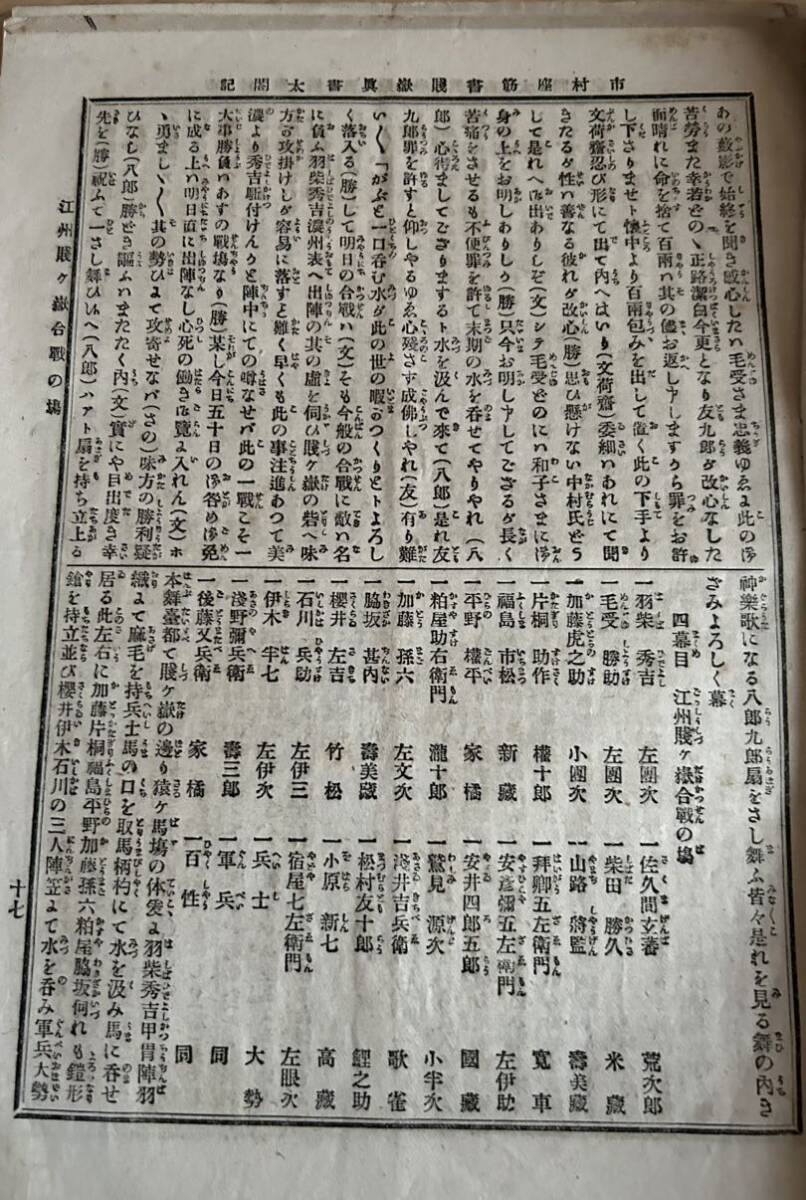 市村座筋書賤嶽眞書太閤記
あの蔭影で始終を聞き感心したハ毛受さま忠義ゆゑよ此の
苦勞また幸若どのゝ正路潔白今更となり友九郎が改心なした
面晴れに命を捨て百兩ハ其の儘お返し申しますから罪をお許
し下さりませト懐中より百兩包みを出して置く此の下手より
文荷齋忍び形にて出て内へはいり(文荷齋)委細ハあれにて聞
きたるが性ハ善なる彼れが改心(勝)思ひ懸けない中村氏どう
して是れへハ出ありしぞ(文)シテ毛受どのにハ和子さまに
身の上をお明しありしか(勝)只今お明し申してござるが長く
苦痛をさせるも不便罪を許て末期の水を呑せてやりやれ(八
郎)心得ましてござりまするト水を汲んで來て(八郎)是れ友
九郎罪を許すと仰しやるゆゑ心殘さず成佛しやれ(友)有り難
い〳〵「がぶと一口呑む水が此の世の暇ごつくりとトよろし
く落入る(勝)して明日の合戰ハ(文)そも今般の合戰に敵ハ名
に負ふ羽柴秀吉濃州表へ出陣の其の虚を伺ひ賤ケ嶽の砦へ味
方が攻掛けしが容易に落すと難く早くも此の事注進あつて美
濃より秀吉駈付けんかと陣中にての噂さなせバ此の一戰こそ一
大事勝負ハあすの戰場なり(勝)某し今日五十日の咎め免
に成る上ハ明日直に出陣なし必死の働き覽よ入れん(文)ホ
ヽ勇ましヽ〳〵其の勢ひよて攻寄せなバ(さの)味方の勝利疑
ひなし(八郎)勝どき謳ふハまたたく内(文)實にや目出度き幸
先を(勝)祝ふて一さし舞ひハへ(八郎)ハアト扇を持ち立上る
江州賤ケ嶽合戰の塲
神樂歌になる八郎九郎扇をさし舞ふ皆々是れを見る舞の内き
ざみよろしく幕
四幕目 江州賤ケ嶽合戰の塲
一羽柴秀吉 左團次
一毛受勝助 左團次
一加藤虎之助 小團次
一片桐助作 權十郎
一福島市松 新藏
一平野權平 家橘
一粕屋助右衛門 瀧十郎
一加藤孫六 左文次
一脇坂甚内 壽美藏
一櫻井左吉 竹松
一石川兵助 左伊三
一伊木半七 左伊次
一淺野彌兵衛 壽三郎
一後藤又兵衛 家橘
一佐久間玄蕃 荒次郎
一柴田勝久 米藏
一山路將監 壽美藏
一拜郷五左衛門 寬車
一安彦彌五左衛門 左伊助
一安井四郎五郎 國藏
一鷲見源次 小半次
一淺井吉兵衛 歌雀
一松村友十郎 鯉之助
一小原新七 高藏
一宿屋七左衛門 左眼次
一兵士 大勢
一軍兵 同
一百性 同
本舞臺都て賤ケ嶽の邊り猿ケ馬塲の体爰よ羽柴秀吉甲冑陣羽
織よて麻毛を持兵士馬の口を取馬柄杓にて水を汲み馬に呑せ
居る此左右に加藤片桐福島平野加藤孫六粕屋脇坂何れも鎧形
鎗を持立並び櫻井伊木石川の三人陣笠よて水を呑み軍兵大勢
十七